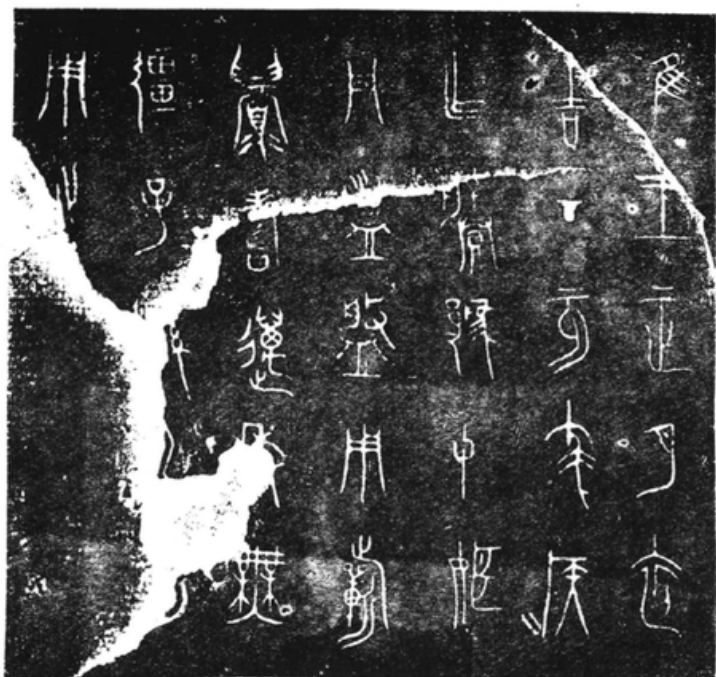 隹王正月初
吉丁亥蔡侯
乍媵鄬中姬
丹盥盤用祈
眉壽萬年無
疆子孫
用之